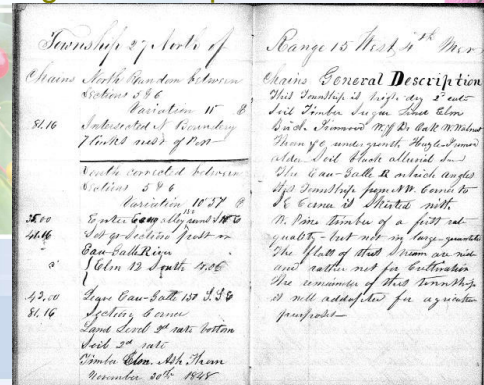 Township 27 North of
Chains North Random between
Sections 5 & 6
Variation 11° E
81.16 Intersected N Boundary
7 links west of Post
South corrected between
Sections 5 & 6
Variation 10°57 E
Enter valley
Set qr Section post on
Eau Galle River
Elm 12 South
Leave Eau Galle 150 S & E
81.16 Section Corner
Land Level 2d rate bottom
Soil 2d rate
Timber Elm. Ash Thorn
November 20th 1848
Range 15 West 4th Mer
Chains General Description
This Township is high dry 2d rate
Soil Timber Sugar Lind Elm
Birch Ironwood W & B Oak W Walnut
Thorn &c undergrowth Hazle
alder Soil Black alluvial
The Eau Galle R which angles
this Township from N.W. Corner to
S E Corner is Skirted with
W. Pine timber of a first rate
quality - but not in large quantities
The flatts of this Stream are
and rather wet for Cultivation
The remainder of this township
is well addapted for agriculture
purposes